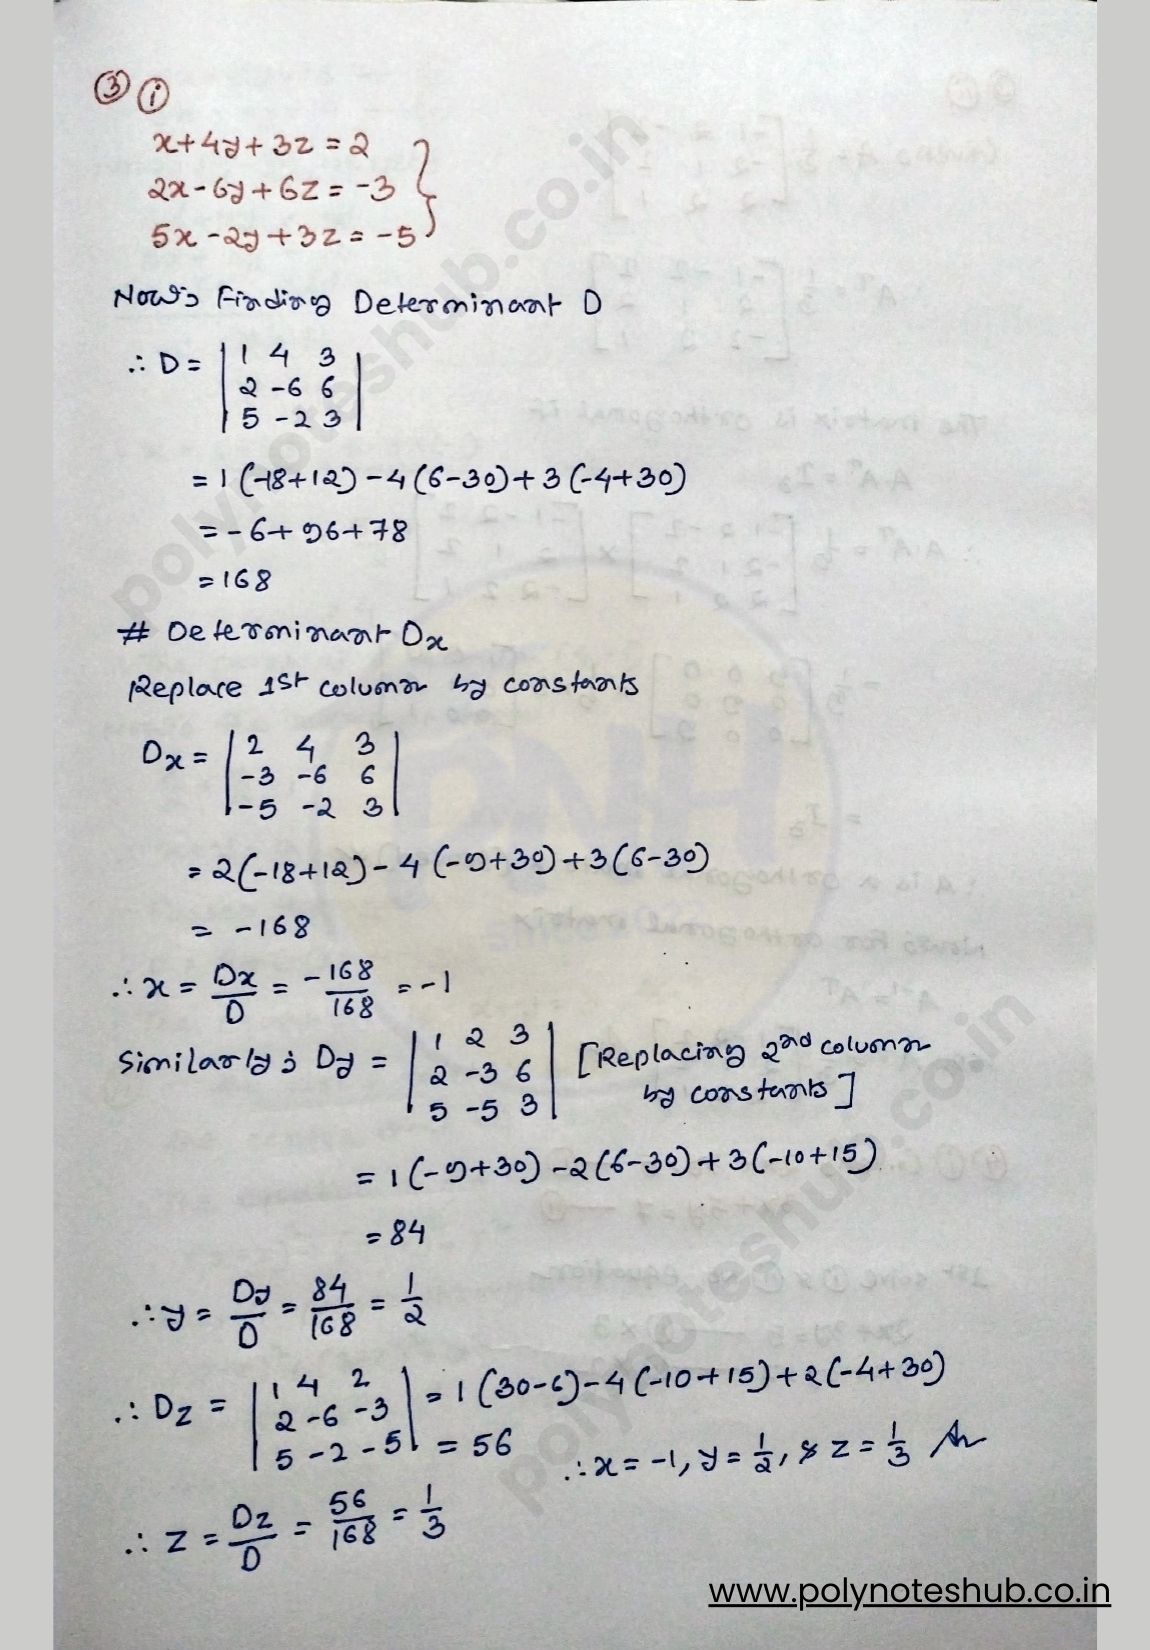 ③ ⓘ
x+4y+3z=2
2x-6y+6z=-3
5x-2y+3z=-5
Now, Finding Determinant D
∴ D = | 1 4 3 |
| 2 -6 6 |
| 5 -2 3 |
= 1(-18+12)-4(6-30)+3(-4+30)
= -6+96+78
=168
# Determinant Dx
Replace 1st column by constants
Dx = | 2 4 3 |
| -3 -6 6 |
| -5 -2 3 |
= 2(-18+12)-4(-9+30)+3(6-30)
= -168
∴ x = Dx/D = -168/168 = -1
Similarly, Dy = | 1 2 3 | [Replacing 2nd column
| 2 -3 6 | by constants]
| 5 -5 3 |
= 1(-9+30)-2(6-30)+3(-10+15)
= 84
∴ y = Dy/D = 84/168 = 1/2
∴ Dz = | 1 4 2 | = 1(30-6)-4(-10+15)+2(-4+30)
| 2 -6 -3 |
| 5 -2 -5 | = 56
∴ x = -1, y = 1/2, & z = 1/3 Ans
∴ z = Dz/D = 56/168 = 1/3
polynoteshub.co.in
polynoteshub.co.in
PNH
www.polynoteshub.co.in